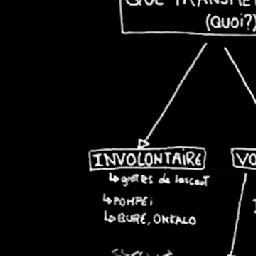 QUE TRANSMET
(QUOI?)
INVOLONTAIRE
VO
↳ grottes de lascaut
↳ POMPEi
↳ BURE, ONKALO